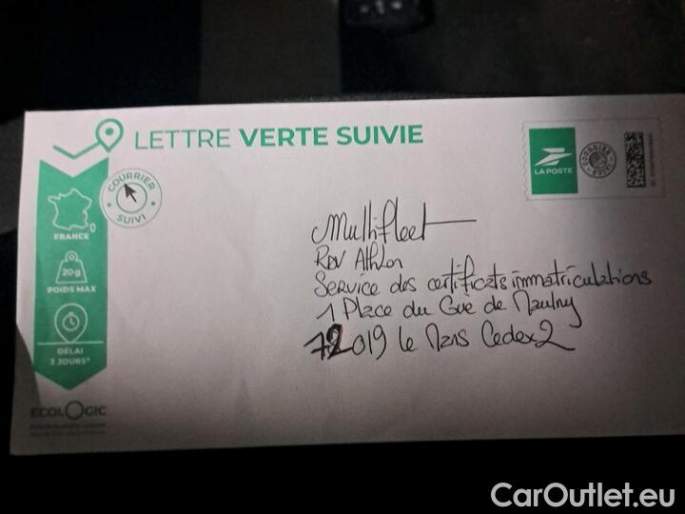 LETTRE VERTE SUIVIE
COURRIER
SUIVI
LA POSTE
COURRIER
SUIVI
FRANCE
20g
POIDS MAX
DÉLAI
3 JOURS*
ECOLOGIC
Multifleet
RDV Athlon
Service des certificats immatriculations
1 Place du Gué de Maulny
72019 le Mans Cedex 2
CarOutlet.eu